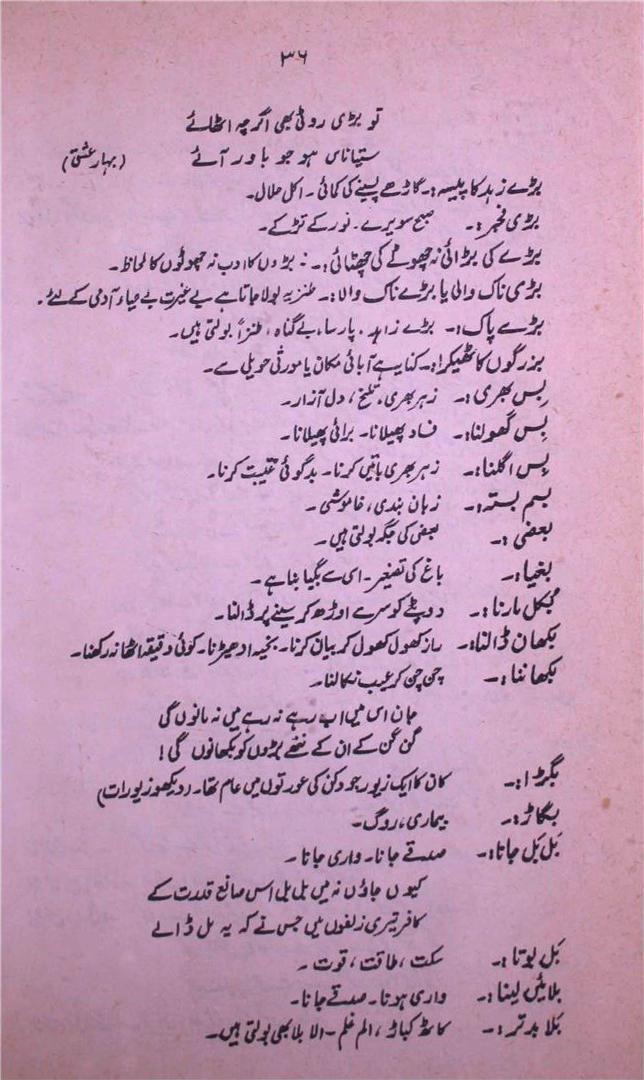 ۳۶
تو بڑی روٹی بھی اگرچہ اٹھائے
ستیاناس ہو جو باور آئے (بہار عشق)
بڑے زہد کا پیسہ:۔ گاڑھے پسینے کی کمائی۔ اکل حلال۔
بڑی فجر:۔ صبح سویرے۔ نور کے تڑکے۔
بڑے کی بڑائی نہ چھوٹے کی چھٹائی:۔ بڑوں کا ادب نہ چھوٹوں کا لحاظ۔
بڑی ناک والی یا بڑے ناک والا:۔ طنزیہ بولا جاتا ہے بے غیرت بے حیاء آدمی کے لئے۔
بڑے پاک:۔ بڑے زاہد۔ پارسا، بے گناہ، طنزاً بولتی ہیں۔
بزرگوں کا ٹھیکرا:۔ کنایہ ہے آبائی مکان یا مورثی حویلی سے۔
بِس بھری:۔ زہر بھری، تلخ، دل آزار۔
بِس گھولنا:۔ فساد پھیلانا۔ برائی پھیلانا۔
بِس اگلنا:۔ زہر بھری باتیں کرنا۔ بدگوئی غیبت کرنا۔
بسم بستہ:۔ زبان بندی، خاموشی۔
بعضی:۔ بعض کی جگہ بولتی ہیں۔
بغچیا:۔ باغ کی تصغیر۔ اسی سے بگیا بنا ہے۔
بُکل مارنا:۔ دوپٹے کو سر سے اوڑھ کر سینے پر ڈالنا۔
بکھان ڈالنا:۔ راز کھول کھول کر بیان کرنا۔ بخیہ ادھیڑنا۔ کوئی دقیقہ اٹھا نہ رکھنا۔
بکھاننا:۔ چن چن کر عیب نکالنا۔
جان اس میں اب رہے نہ رہے میں نہ مانوں گی
گن گن کے ان کے ننھے بڑوں کو بکھانوں گی!
بگڑا:۔ کان کا ایک زیور جو دکن کی عورتوں میں عام تھا۔ (دیکھو زیورات)
بگاڑ:۔ بیماری، روگ۔
بَل بَل جانا:۔ صدقے جانا۔ واری جانا۔
کیوں جاؤں نہ میں بل بل اس صانع قدرت کے
کافر تیری زلفوں میں جس نے کہ یہ بل ڈالے
بَل بوتا:۔ سکت، طاقت، قوت۔
بلائیں لینا:۔ واری ہونا۔ صدقے جانا۔
بَلا بدتر:۔ کاٹھ کباڑ، الم غلم۔ الا بلا بھی بولتی ہیں۔